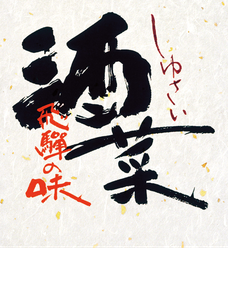 しゅさい
酒菜
飛騨の味